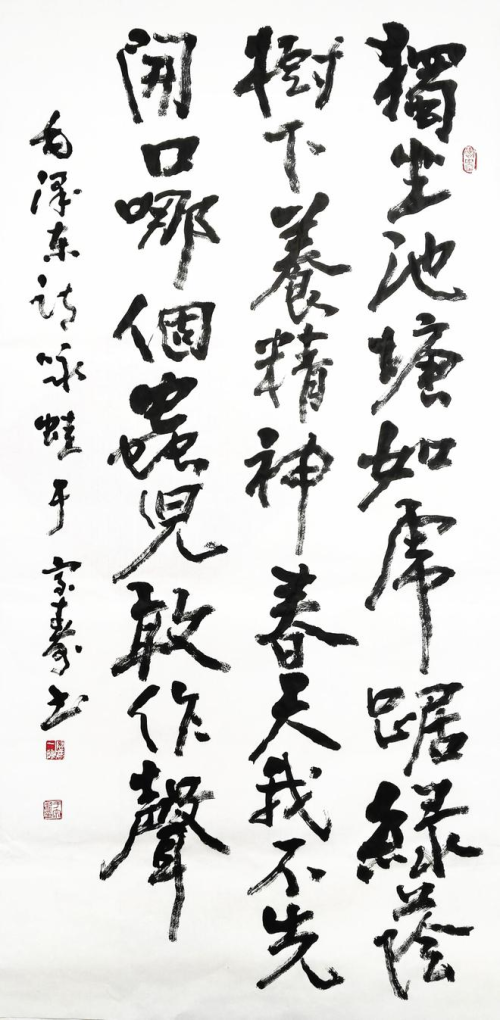 獨坐池塘如虎踞綠蔭
樹下養精神春天我不先
開口哪個蟲兒敢作聲
毛澤東詩詠蛙于家壽书